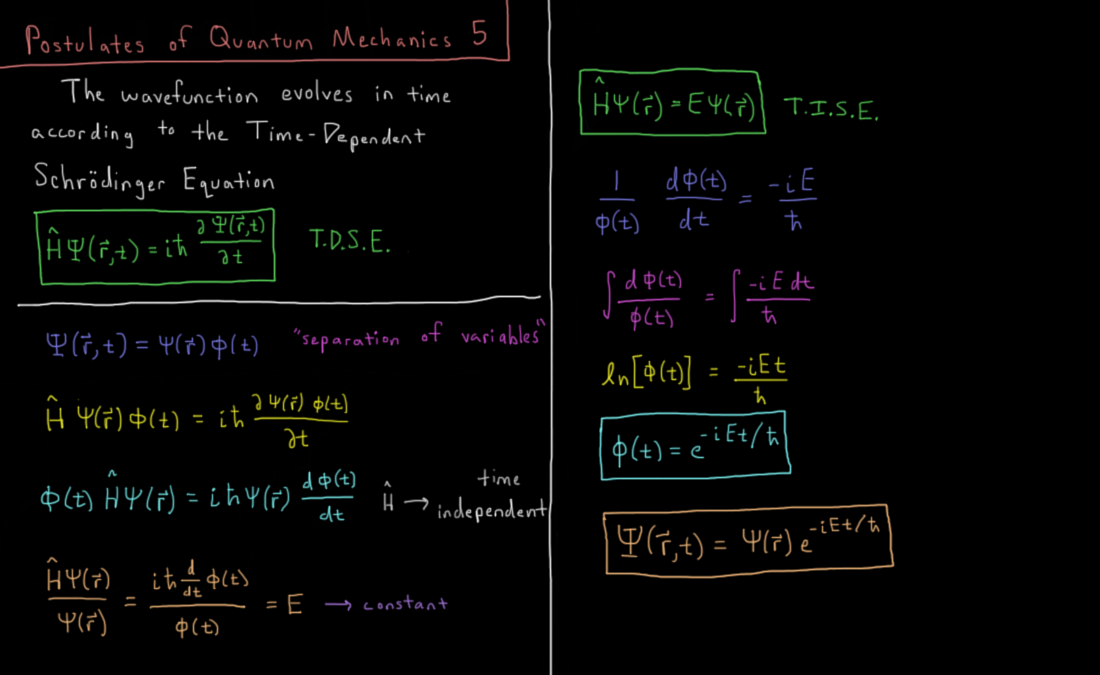 Postulates of Quantum Mechanics 5
The wavefunction evolves in time
according to the Time-Dependent
Schrödinger Equation
ĤΨ(r⃗,t) = iħ ∂Ψ(r⃗,t)/∂t T.D.S.E.
Ψ(r⃗,t) = ψ(r⃗) ϕ(t) "separation of variables"
Ĥ ψ(r⃗) ϕ(t) = iħ ∂ψ(r⃗) ϕ(t)/∂t
ϕ(t) Ĥψ(r⃗) = iħ ψ(r⃗) dϕ(t)/dt Ĥ → time
independent
Ĥψ(r⃗)/ψ(r⃗) = iħ d/dt ϕ(t)/ϕ(t) = E → constant
Ĥψ(r⃗) = Eψ(r⃗) T.I.S.E.
1/ϕ(t) dϕ(t)/dt = -iE/ħ
∫ dϕ(t)/ϕ(t) = ∫ -iE dt/ħ
ln[ϕ(t)] = -iEt/ħ
ϕ(t) = e^{-iEt/ħ}
Ψ(r⃗,t) = ψ(r⃗) e^{-iEt/ħ}